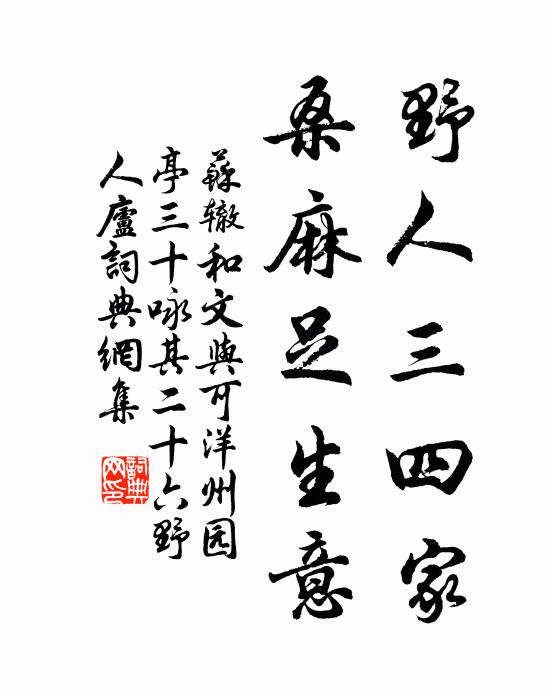 野人三四家
桑麻足生意
蘇辙和文與可洋州园
亭三十咏其二十六野
人廬詞典網集
詞典
网印